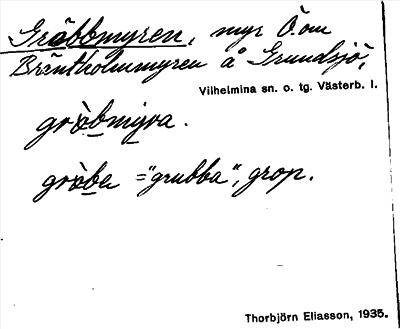 Gräbbmyren, myr Ö. om
Bräntholmmyren å Grundsjö,
Vilhelmina sn. o. tg. Västerb. l.
gròbmýra.
gròba = "grubba", grop.
Thorbjörn Eliasson, 1935.